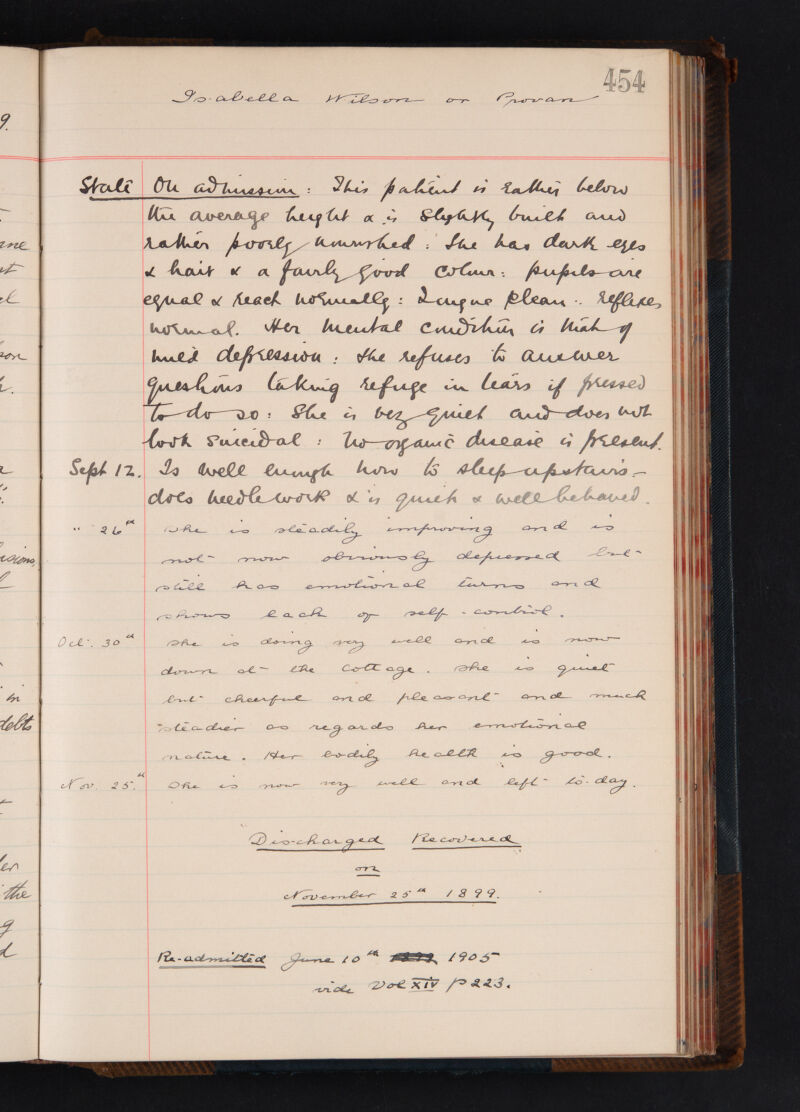 454
Isabella Wilson or Provan
State On admission : This patient is rather below
the average height & is slightly built and
rather poorly nourished : She has dark eyes
& hair & a fairly good colour : pupils are
equal & react normally : Tongue clean : reflexes
normal. Her mental condition is that of
mild depression : she refuses to answer
questions taking refuge in tears if pressed
to do so : She is very quiet and does not
look suicidal : No organic disease is present.
Sept 12. Is well enough now to sleep upstairs –
does needlework & is quiet & well behaved.
" 26th She is steadily improving and is
not now obviously depressed but
still has emotional turns and
shows lack of self-control.
Oct. 30th She is doing very well and is now
down at the Cottage. She is quiet
but cheerful and pleasant and much
steadier as regards her emotional
nature. Her bodily health is good.
Nov. 25th She is now very well and left to-day.
Discharged Recovered
on
November 25th 1899.
Re-admitted June 10th 1905
vide Vol XIV p 223.